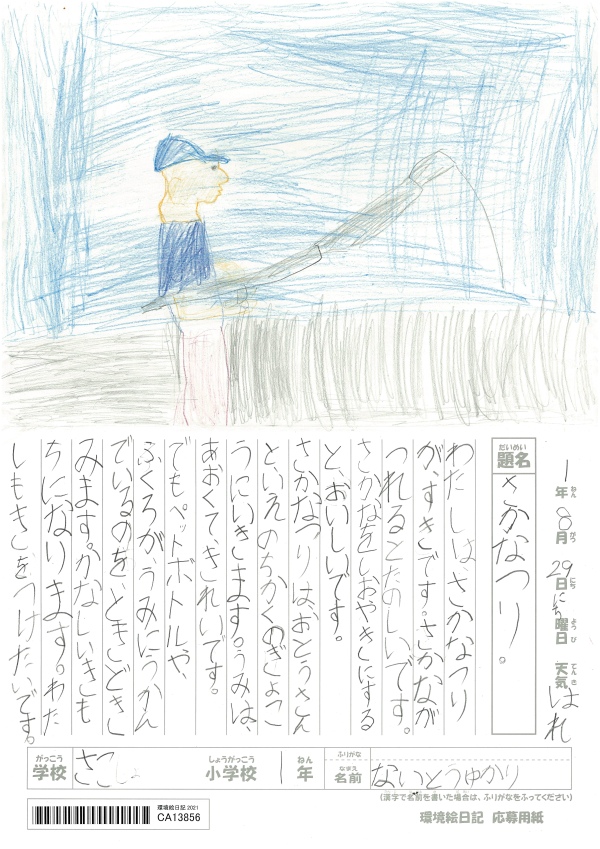 1年8月29日にち曜日 天気はれ
ねん がつ にち ようび てんき
だいめい
題名 さかなつり。
わたしはさかなつり
が、すきです。さかなが
つれるとたのしいです。
さかなをしおやきにする
と、おいしいです。
さかなつりはおとうさん
といえのちかくのぎょこ
うにいきます。うみは、
あおくて、きれいです。
でもペットボトルや、
ふくろがうみにつかん
でいるのを、ときどきし
みます。かなしいきも
ちになります。わた
しもきをつけたいです。
がっこう しょうがっこう ねん ふりがな
学校 さこし 小学校 1年
なまえ
名前 ないとうゆかり
(漢字で名前を書いた場合は、ふりがなをふってください)
環境絵日記 2021
CA13856
環境絵日記 応募用紙